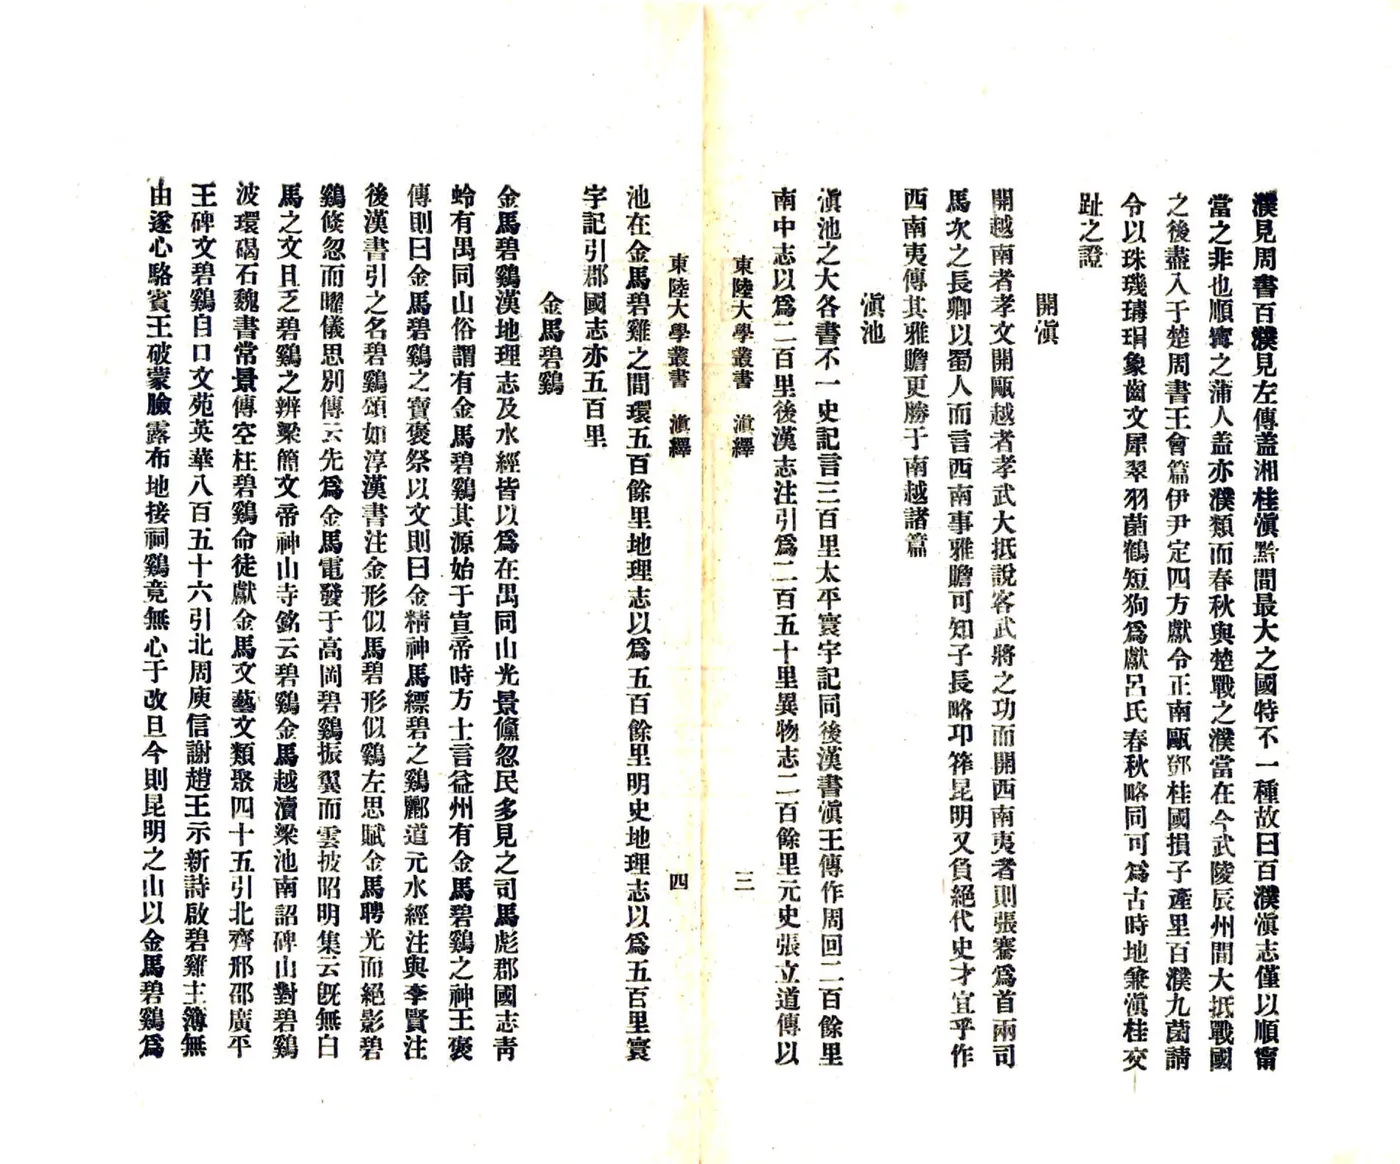 濮見周書百濮見左傳蓋湘桂滇黔間最大之國特不一種故曰百濮滇志僅以順甯
當之非也順寗之蒲人盖亦濮類而春秋與楚戰之濮當在今武陵辰州間大抵戰國
之後盡入于楚周書王會篇伊尹定四方獻令正南甌鄧桂國損子產里百濮九菌請
令以珠璣瑇瑁象齒文犀翠羽菌鶴短狗爲獻呂氏春秋略同可爲古時地兼滇桂交
趾之證
開滇
開越南者孝文開甌越者孝武大抵說客武將之功而開西南夷者則張騫爲首兩司
馬次之長卿以蜀人而言西南事雅贍可知子長略邛筰昆明又負絕代史才宜乎作
西南夷傳其雅贍更勝于南越諸篇
滇池
滇池之大各書不一史記言三百里太平寰宇記同後漢書滇王傳作周回二百餘里
南中志以爲二百里後漢志注引爲二百五十里異物志二百餘里元史張立道傳以
東陸大學叢書 滇繹 三
東陸大學叢書 滇繹 四
池在金馬碧雞之間環五百餘里地理志以爲五百餘里明史地理志以爲五百里寰
宇記引郡國志亦五百里
金馬碧鷄
金馬碧鷄漢地理志及水經皆以爲在禺同山光景儵忽民多見之司馬彪郡國志靑
蛉有禺同山俗謂有金馬碧鷄其源始于宣帝時方士言益州有金馬碧鷄之神王褒
傳則曰金馬碧鷄之寶褒祭以文則曰金精神馬縹碧之鷄酈道元水經注與李賢注
後漢書引之名碧鷄頌如淳漢書注金形似馬碧形似鷄左思賦金馬騁光而絕影碧
鷄倏忽而曜儀思別傳云先爲金馬電發于高岡碧鷄振翼而雲披昭明集云旣無白
馬之文且乏碧鷄之辨梁簡文帝神山寺銘云碧鷄金馬越瀆梁池南詔碑山對碧鷄
波環碣石魏書常景傳空枉碧鷄命徒獻金馬文藝文類聚四十五引北齊邢邵廣平
王碑文碧鷄自口文苑英華八百五十六引北周庾信謝趙王示新詩啟碧雞主簿無
由遂心駱賓王破蒙臉露布地接祠鷄竟無心于改旦今則昆明之山以金馬碧鷄爲